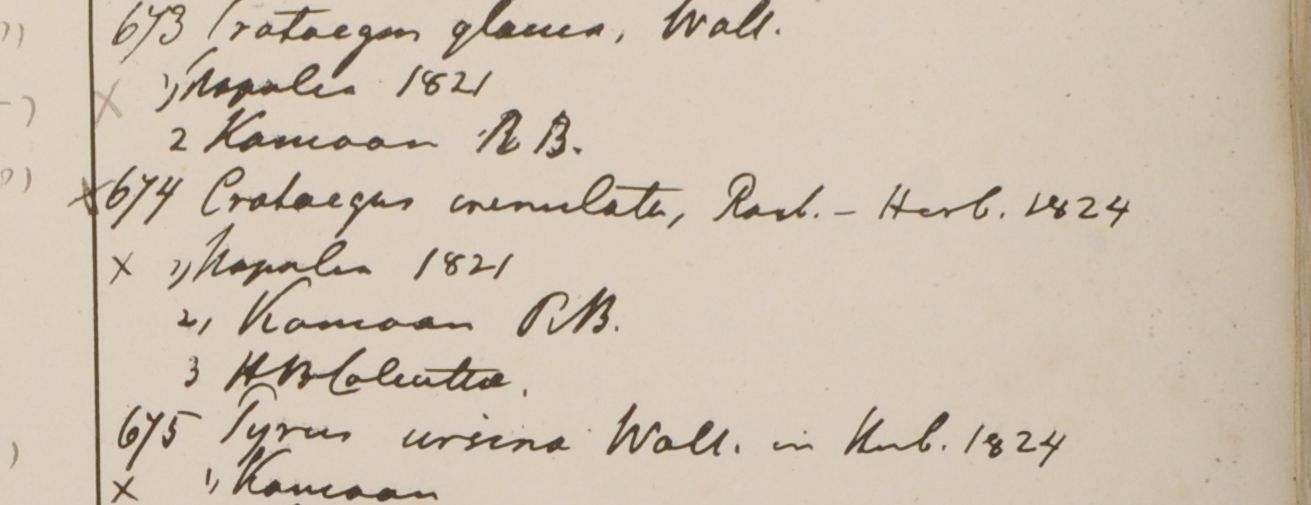 673 Crataegus glauca, Wall.
x 1, Napalia 1821
2 Kamoan R B.
x 674 Crataegus crenulata, Roxb. - Herb. 1824
x 1, Napalia 1821
2, Kamoan R B.
3 H B Calcuttae.
675 Pyrus ursina Wall. in Herb. 1824
x 1, Kamoan